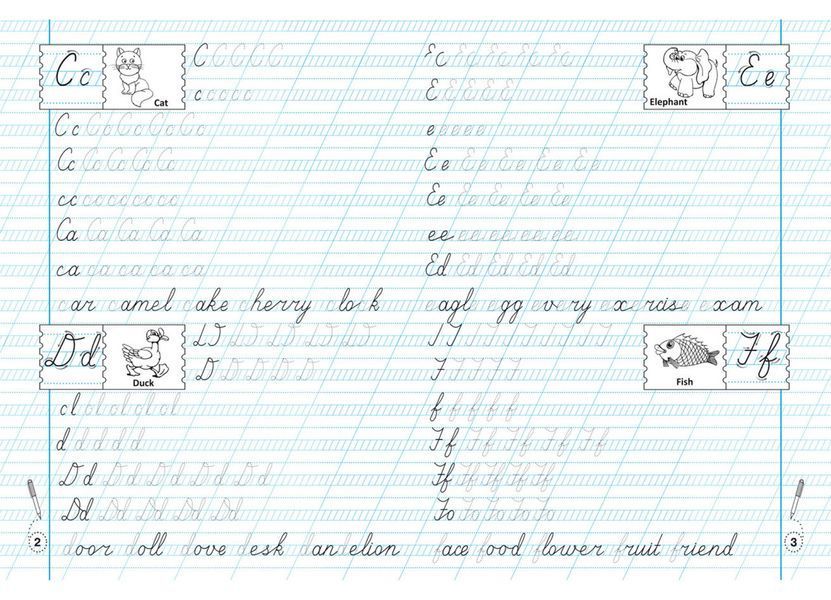 Cc
Cat
C C C C C
c c c c c
Cc Cc Cc Cc Cc
Cc Cc Cc Cc Cc
cc cc cc cc cc
Ca Ca Ca Ca Ca
ca ca ca ca ca
car camel cake cherry clock
Dd
Duck
D D D D D
cl cl cl cl cl
d d d d d
Dd Dd Dd Dd Dd
Dd Dd Dd Dd Dd
door doll dove desk dandelion
2
Ee
Elephant
E E E E E
e e e e e
Ee Ee Ee Ee Ee
Ee Ee Ee Ee Ee
ee ee ee ee ee
Ed Ed Ed Ed Ed
eagle egg every exercise exam
Ff
Fish
F F F F F
f f f f f
Ff Ff Ff Ff Ff
Ff Ff Ff Ff Ff
Fo Fo Fo Fo Fo
face food flower fruit friend
3